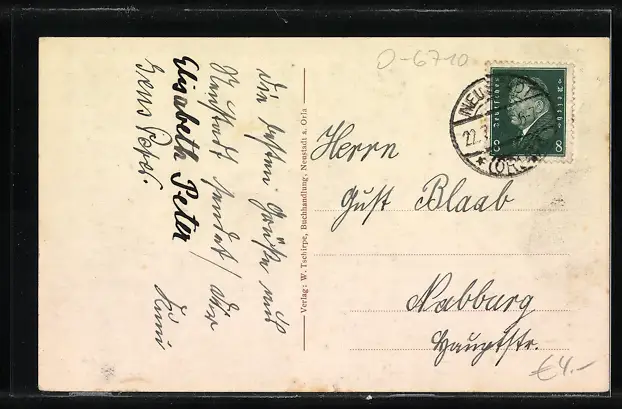 O-6710
Die besten Grüße aus
Neustadt sendet
Elisabeth Peter
Verlag: W. Tschirpe, Buchhandlung, Neustadt a. Orla
Deutsches Reich
8 8
NEU
22.3
(OR
Herrn
Gust Blaab
Nabburg
Hauptstr.
€4.-